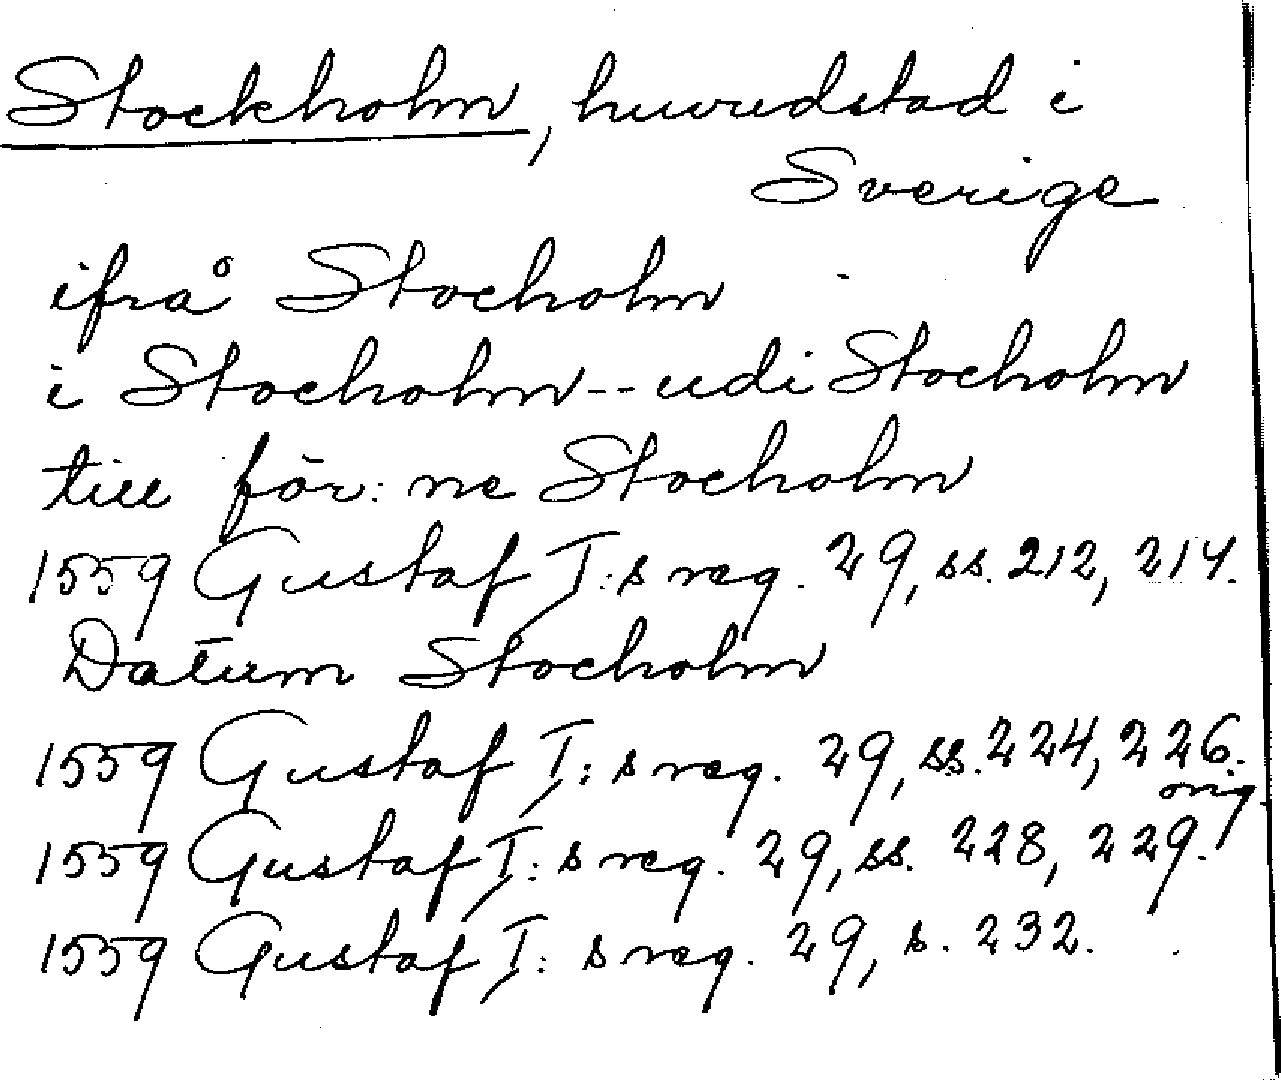 Stockholm, huvudstad i
Sverige
ifrå Stocholm
i Stocholm -- udi Stocholm
till för: ne Stocholm
1559 Gustaf I:s reg. 29, ss. 212, 214.
Datum Stocholm
1559 Gustaf I:s reg. 29, ss. 224, 226.
orig.
1559 Gustaf I:s reg. 29, ss. 228, 229.
1559 Gustaf I:s reg. 29, s. 232.